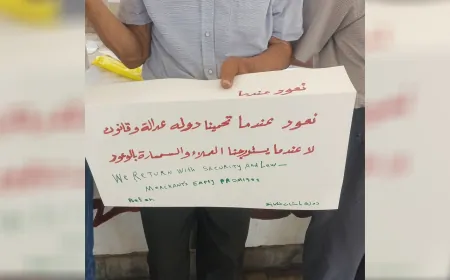 نعود عندما
نعود عندما تحمينا دوله عدالة وقانون
لا عندما يستدرجنا العملاء والسمسارة بالوعود
We Return with Security and Law —
Merchants Empty Promises